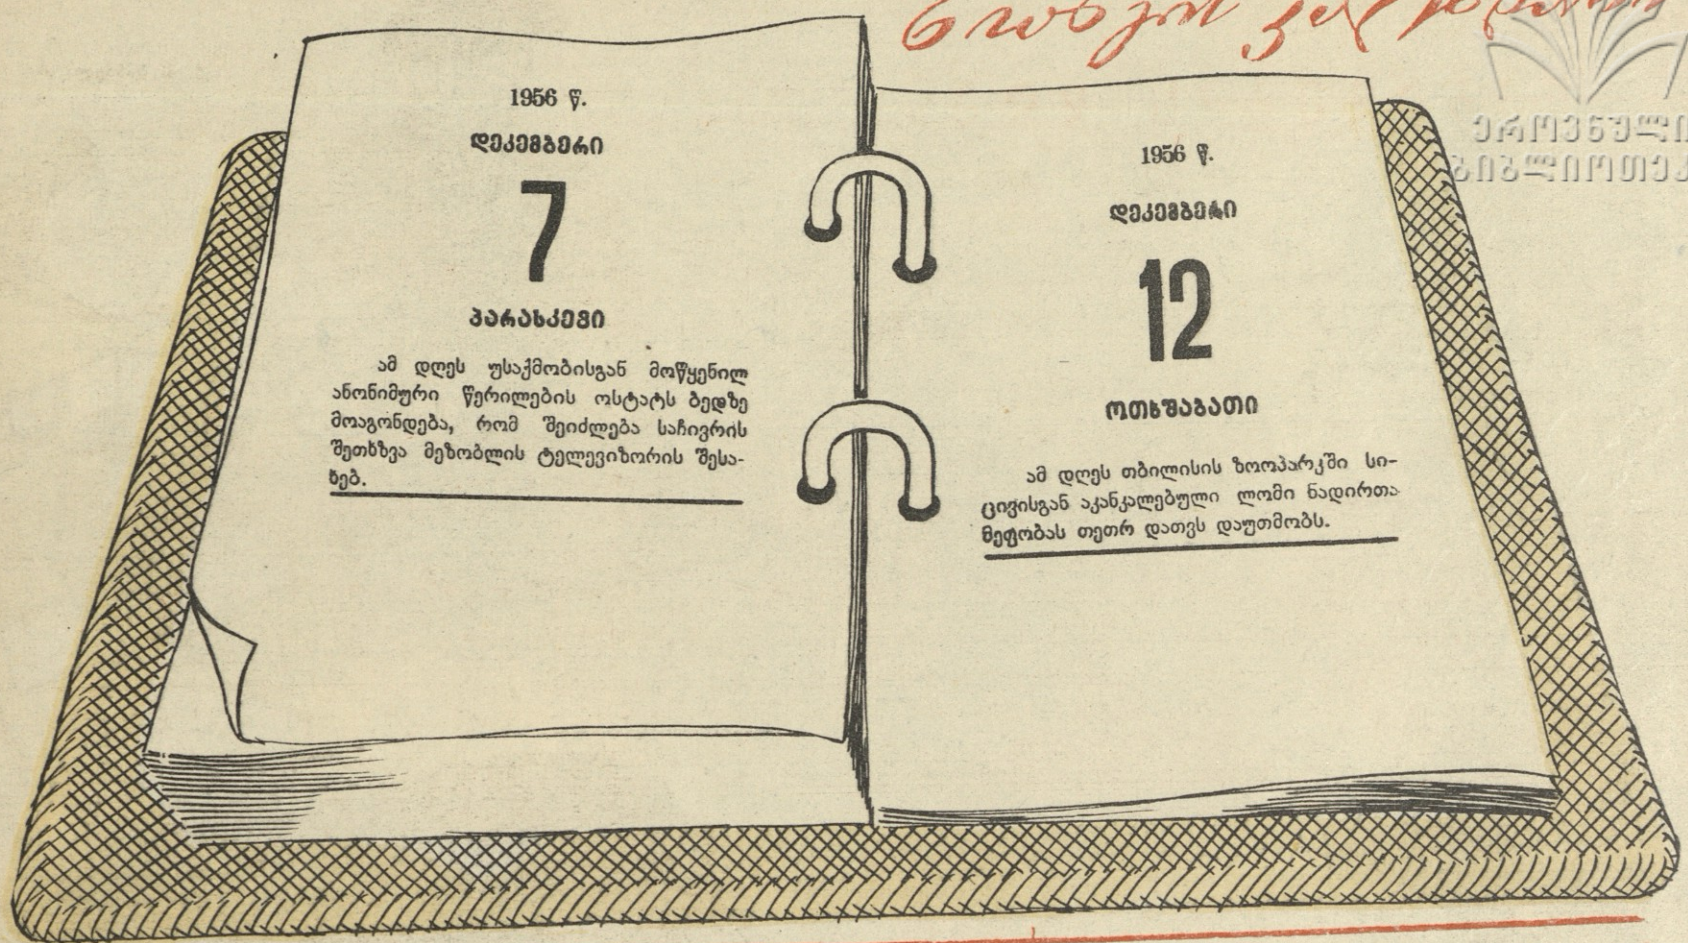 1956 წ.
დეკემბერი
7
პარასკევი
ამ დღეს უსაქმობისგან მოწყენილ
ანონიმური წერილების ოსტატს ბედზე
მოაგონდება, რომ შეიძლება საჩივრის
შეთხზვა მეზობლის ტელევიზორის შესა-
ხებ.
1956 წ.
დეკემბერი
12
ოთხშაბათი
ამ დღეს თბილისის ზოოპარკში სი-
ცივისგან აკანკალებული ლომი ნადირთა
მეფობას თეთრ დათვს დაუთმობს.
ეროვნული
ბიბლიოთეკა